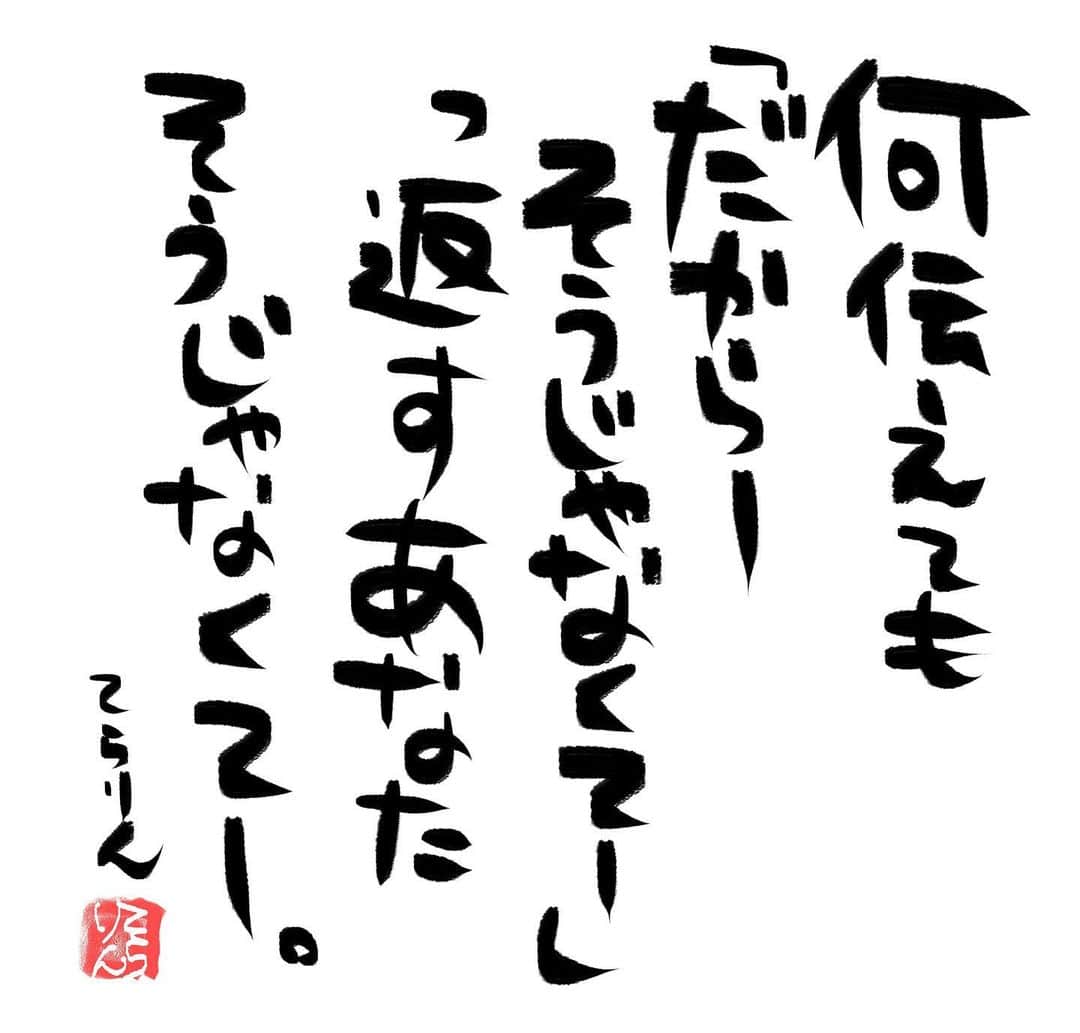 何伝えても
「だからー
そうじゃなくてー」
って返すあなた
そうじゃなくてー。
てらりん
てらりん